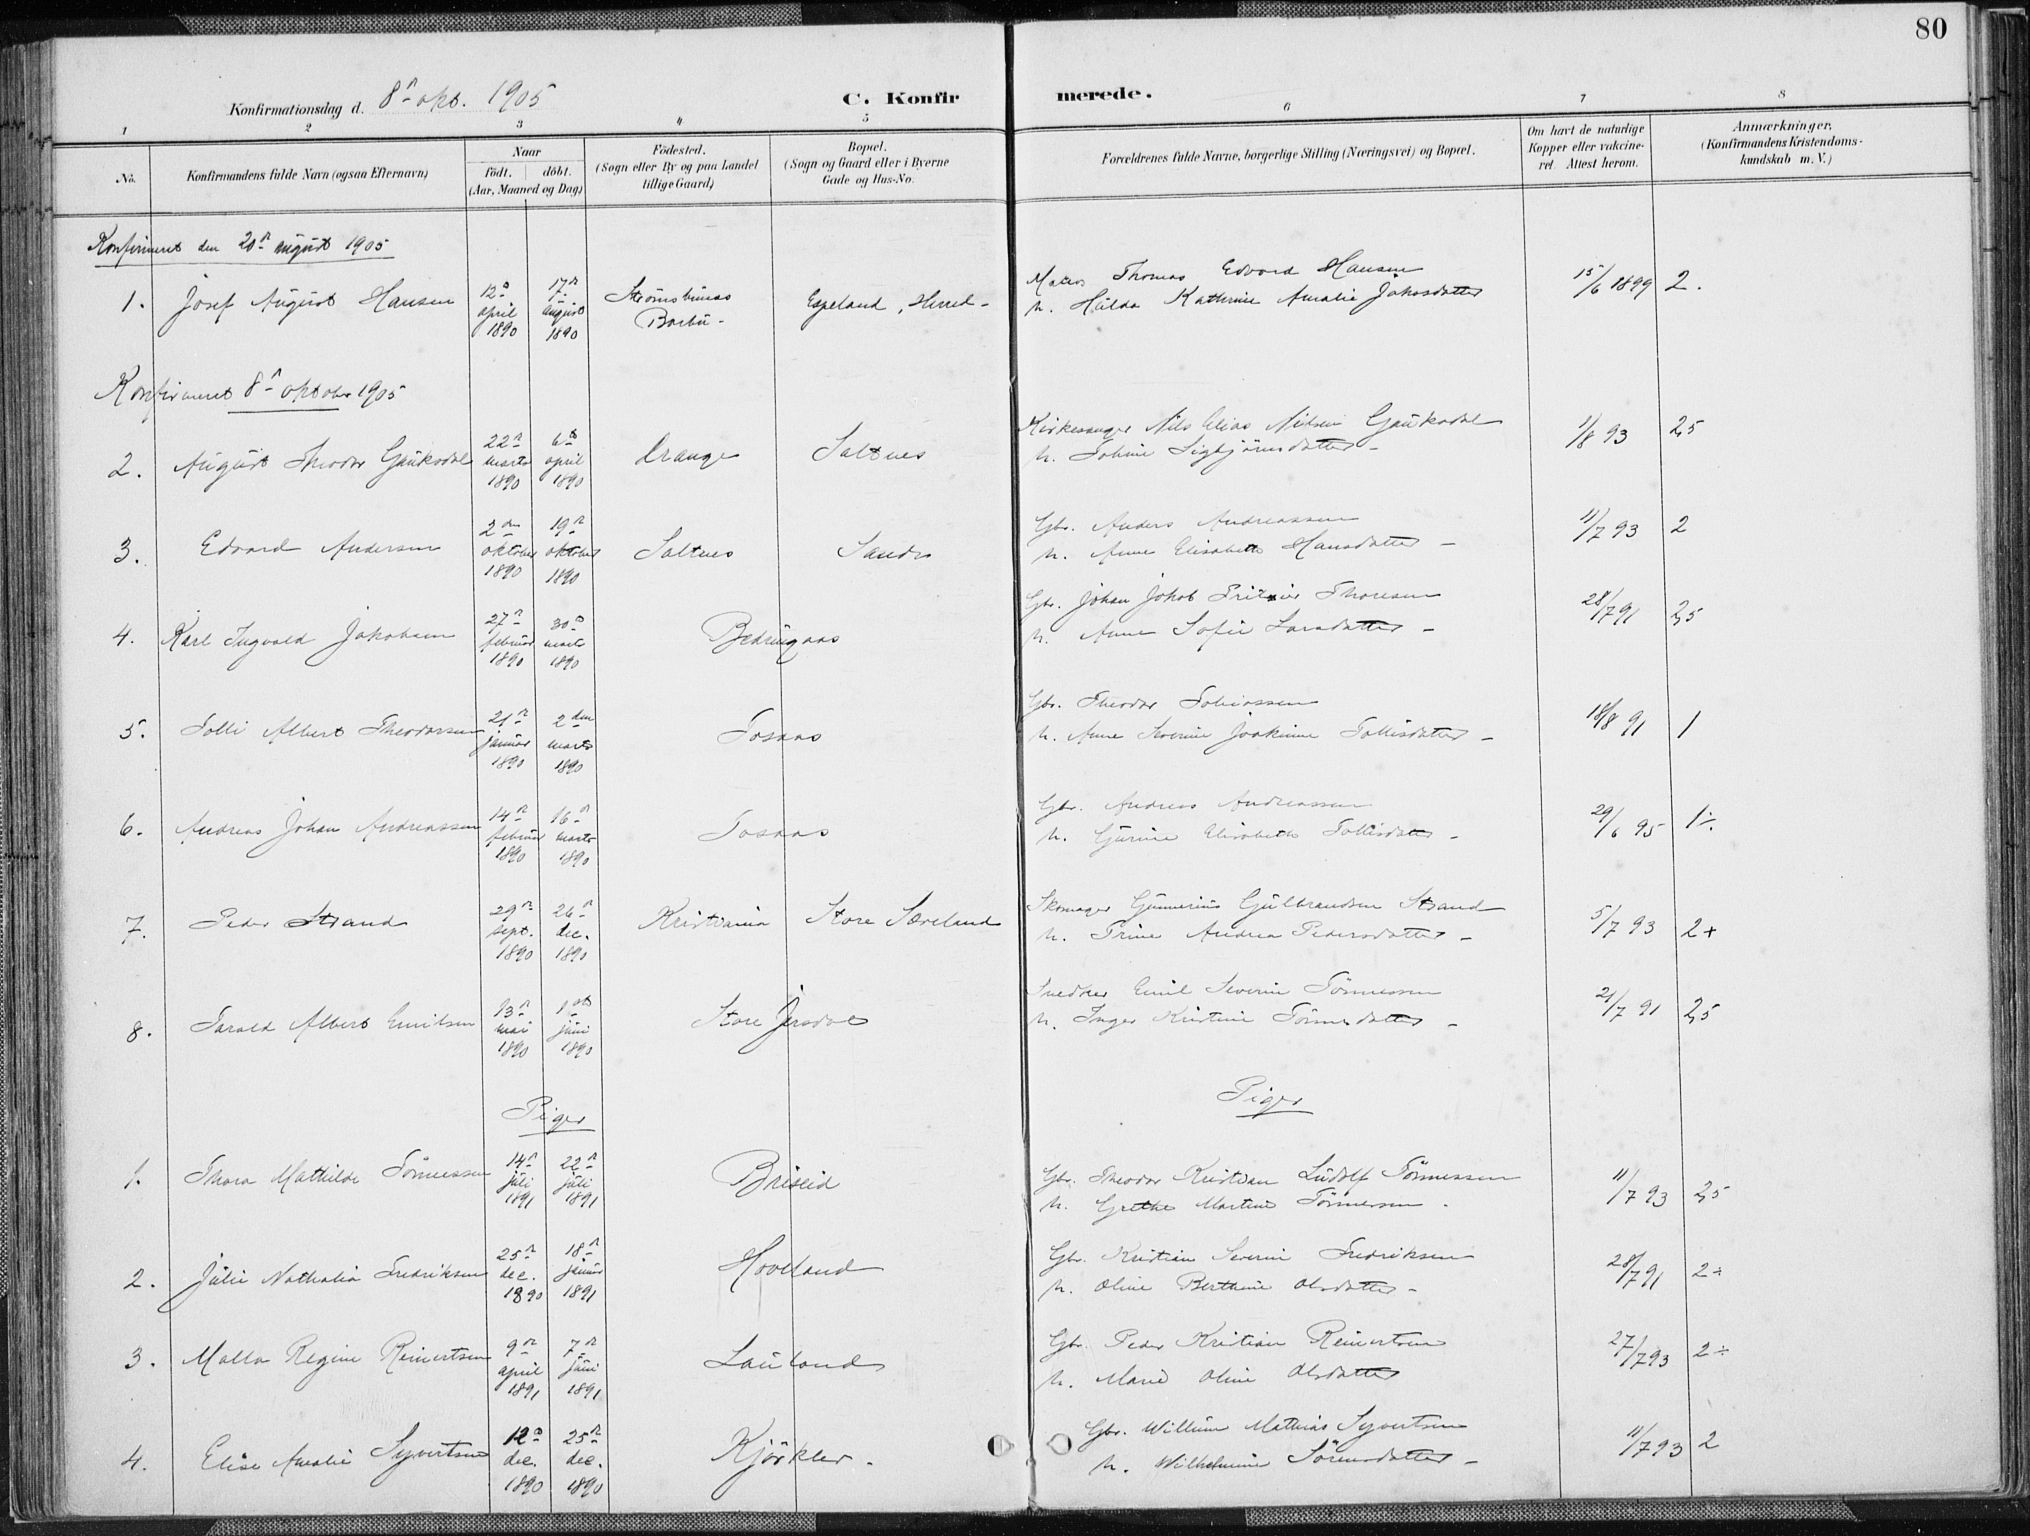 80
Konfirmationsdag d. 8n okt. 1905
C. Konfirmerede.
1 2 3 4 5 6 7 8
No.
Konfirmandens fulde Navn (ogsaa Efternavn)
Naar
födt. döbt.
(Aar, Maaned og Dag)
Födested.
(Sogn eller By og paa Landet
tillige Gaard)
Bopæl.
(Sogn og Gaard eller i Byerne
Gade og Hus-No.
Forældrenes fulde Navne, borgerlige Stilling (Næringsvei) og Bopæl.
Om havt de naturlige
Kopper eller vakcine-
ret. Attest herom.
Anmærkninger.
(Konfirmandens Kristendoms-
kundskab m. V.)
Konfirmeret den 20n august 1905
1. Josef August Hansen 12n april 1890 17n august 1890 Strømsbunas Barbu - Espeland, Herred -
Matros Thomas Edvard Hansen
h. Hilda Kathrine Amalie Jakobsdatter 15/6 1899 2.
Konfirmeret 8n oktober 1905
2. August Theodor Gaukodal 22n marts 1890 6te april 1890 Orange Saltnes
Kirkesanger Nils Elias Nilsen Gaukodal
h. Tobine Sigbjörnsdatter - 1/8 93 2,5
3. Edvard Andersen 2den oktober 1890 19n oktober 1890 Saltnes Sandnes
Gbr. Anders Andreassen
h. Anne Elisabeth Hansdatter - 11/7 93 2
4. Karl Ingvald Jakobsen 27n februar 1890 30n marts 1890 Bedringaas
Gbr. Johan Jakob Thoresen
h. Anne Sofie Larsdatter - 28/7 91 2,5
5. Tolli Albert Theodorsen 21n januar 1890 2den marts 1890 Tosaas
Gbr. Theodor Tobiassen
h. Anne Severine Joakime Tollisdatter - 18/8 91 1
6. Andreas Johan Andreassen 14n februar 1890 16n marts 1890 Tosaas
Gbr. Andreas Andreassen
h. Gurine Elisabeth Tollisdatter - 29/6 95 1÷
7. Peder Strand 29n sept. 1890 26n dec. 1890 Kristiania Store Sæveland
Skomager Gunnerius Gulbrandsen Strand
h. Trine Andrea Pedersdatter - 5/7 93 2+
8. Tarald Albert Emilsen 13n mai 1890 1ste juni 1890 Store Jersdal
Snedker Emil Severin Tönnessen
h. Inger Kristine Tönnesdatter - 21/7 91 2,5
Piger
Piger
1. Thora Mathilde Tönnessen 14n juli 1891 22n juli 1891 Briseid
Gbr. Theodor Kristian Ludolf Tönnessen
h. Grethe Martine Tönnessen - 11/7 93 2,5
2. Julie Nathalia Fredriksen 25n dec. 1890 18n januar 1891 Hoveland
Gbr. Kristian Severin Fredriksen
h. Oline Berthine Olsdatter - 28/7 91 2÷
3. Malla Regine Reinertsen 9n april 1891 7n juni 1891 Lauland
Gbr. Peder Kristian Reinertsen
h. Marie Oline Olsdatter 27/7 93 2÷
4. Elise Amalie Syvertsen 12n dec. 1890 25n dec. 1890 Kjörkler -
Gbr. Willum Mathias Syvertsen
h. Wilhelmine Sörensdatter - 11/7 93 2